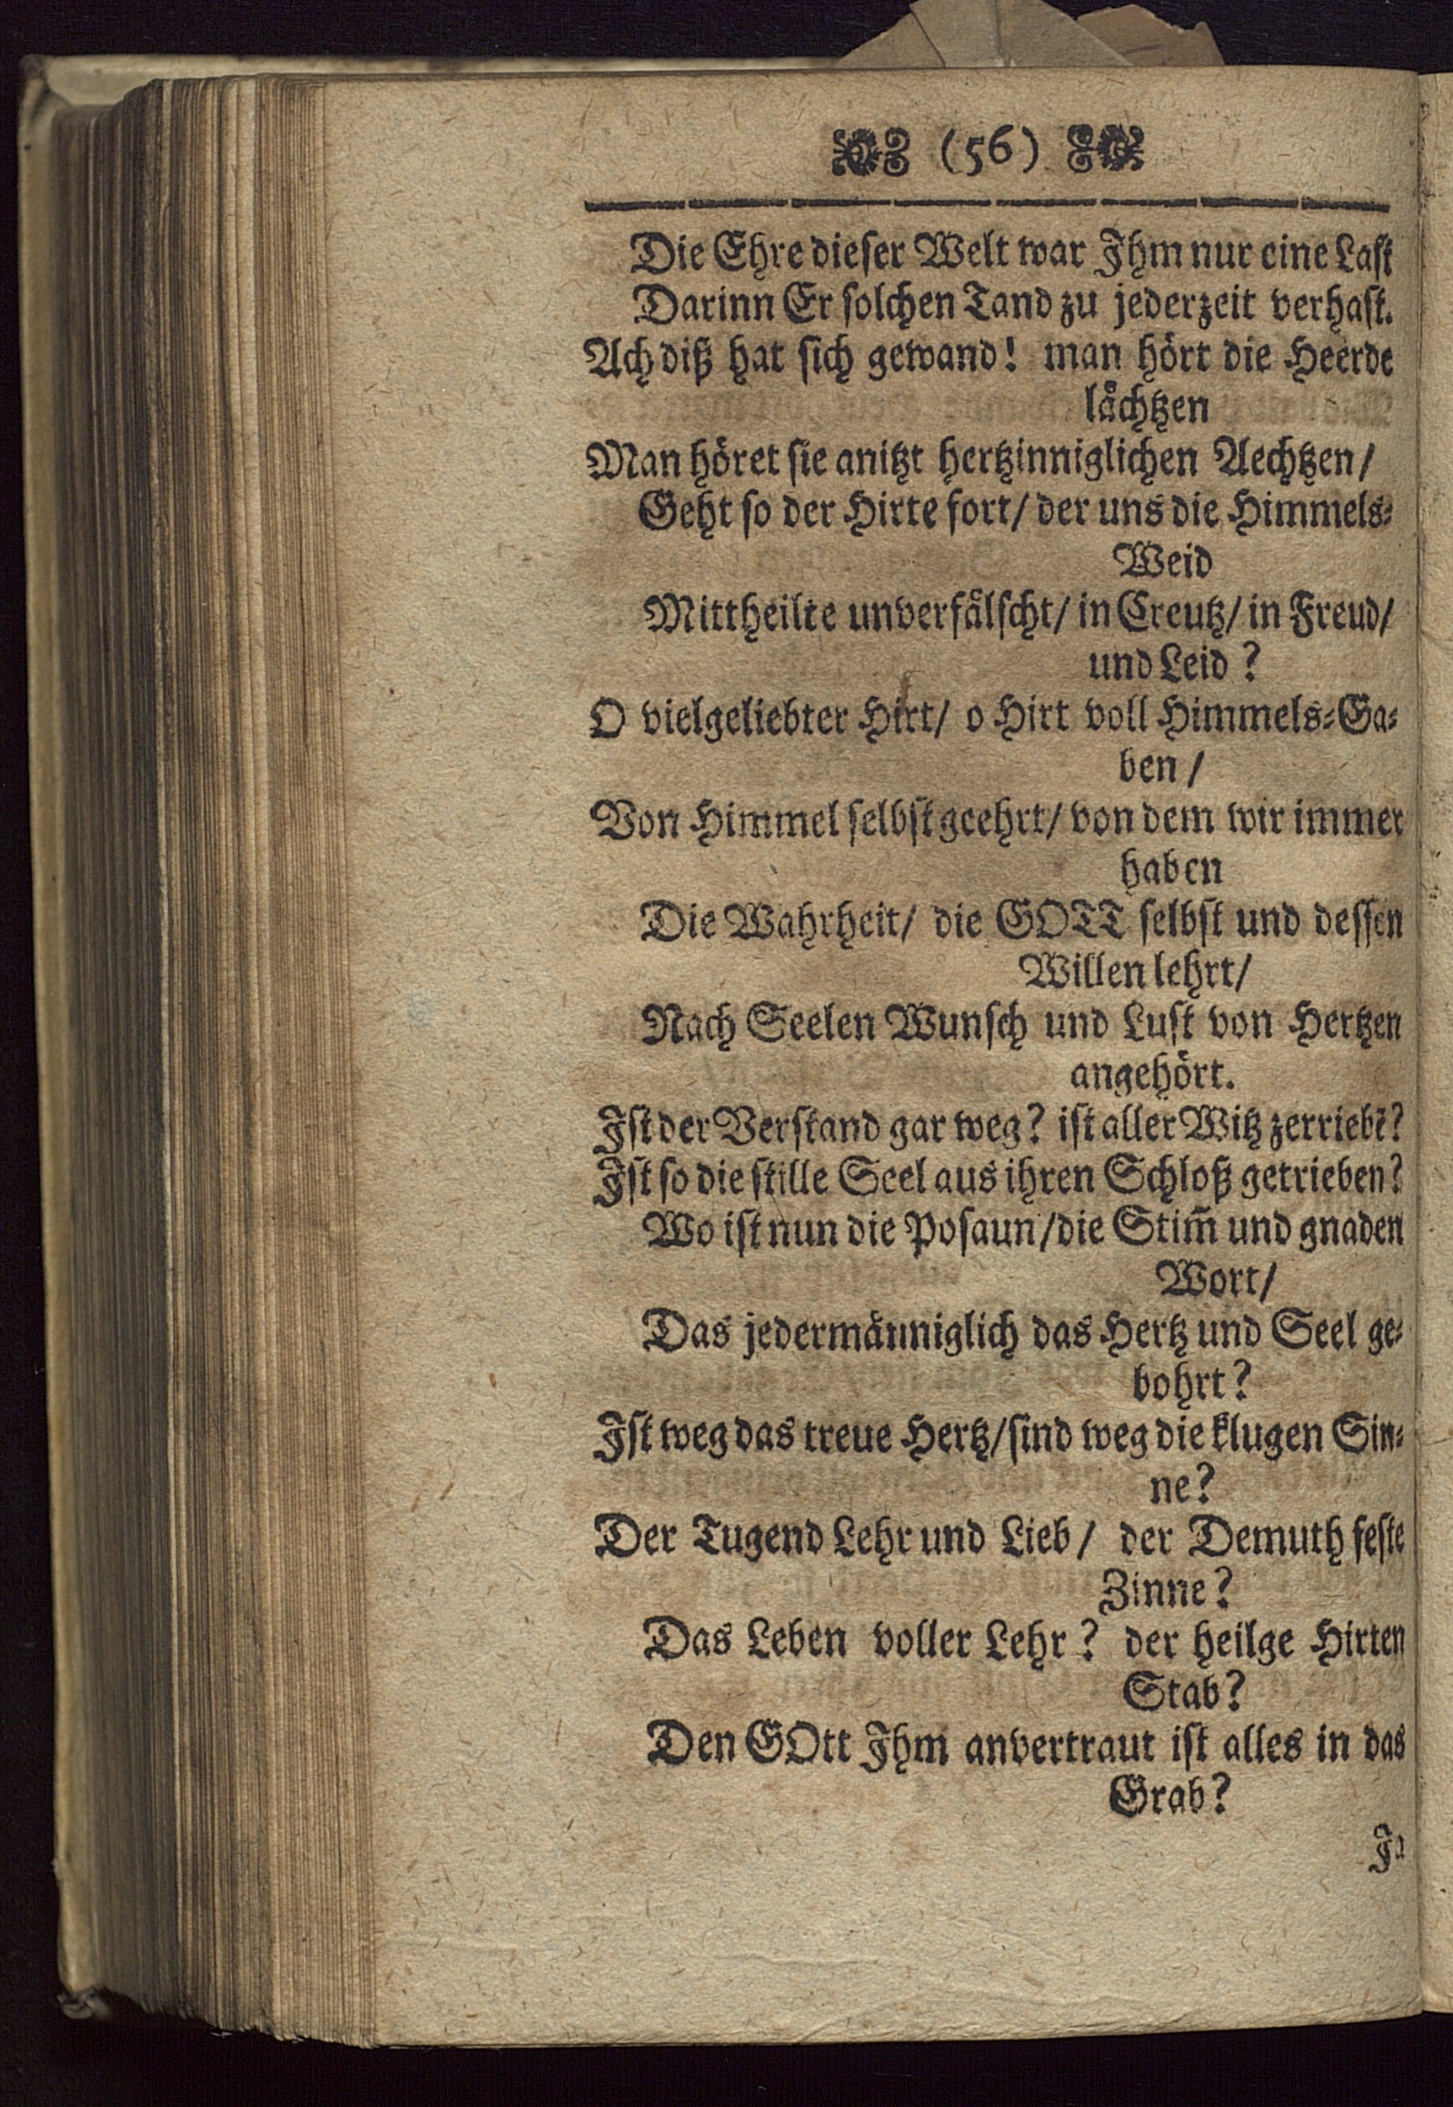 (56)
Die Ehre dieſer Welt war Jhm nur eine Laſt
Darinn Er ſolchen Tand zu jederzeit verhaſt.
Ach diß hat ſich gewand! man hört die Heerde
lächtzen
Man höret ſie anitzt hertzinniglichen Aechtzen/
Geht ſo der Hirte fort/ der uns die Himmels-
Weid
Mittheilte unverfälſcht/ in Creutz/ in Freud/
und Leid?
O vielgeliebter Hirt/ o Hirt voll Himmels-Ga-
ben/
Von Himmel ſelbſt geehrt/ von dem wir immer
haben
Die Wahrheit/ die GOTT ſelbſt und deſſen
Willen lehrt/
Nach Seelen Wunſch und Luſt von Hertzen
angehört.
Jſt der Verſtand gar weg? iſt aller Witz zerriebẽ?
Jſt ſo die ſtille Seel aus ihren Schloß getrieben?
Wo iſt nun die Poſaun/die Stim̃ und gnaden
Wort/
Das jedermänniglich das Hertz und Seel ge-
bohrt?
Jſt weg das treue Hertz/ſind weg die klugen Sin-
ne?
Der Tugend Lehr und Lieb/ der Demuth feſte
Zinne?
Das Leben voller Lehr? der heilge Hirten
Stab?
Den GOtt Jhm anvertraut iſt alles in das
Grab?
Ja